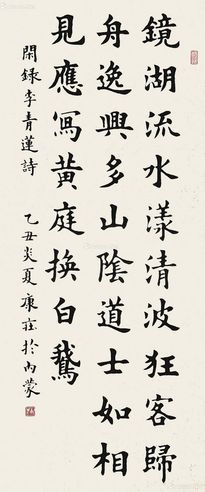 鏡湖流水漾清波狂客歸
舟逸興多山陰道士如相
見應寫黃庭換白鵝
閑錄李青蓮詩
乙丑炎夏康莊於內蒙